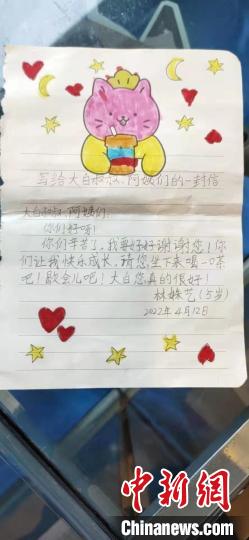 写给大白叔叔、阿姨们的一封信
大白叔叔、阿姨们:
你们好呀!
你们辛苦了,我要好好谢谢您!你
们让我快乐成长,请您坐下来喝一口茶
吧!歇会儿吧!大白您真的很好!
林姝艺(5岁)
2022年4月12日
中新网
Chinanews.com